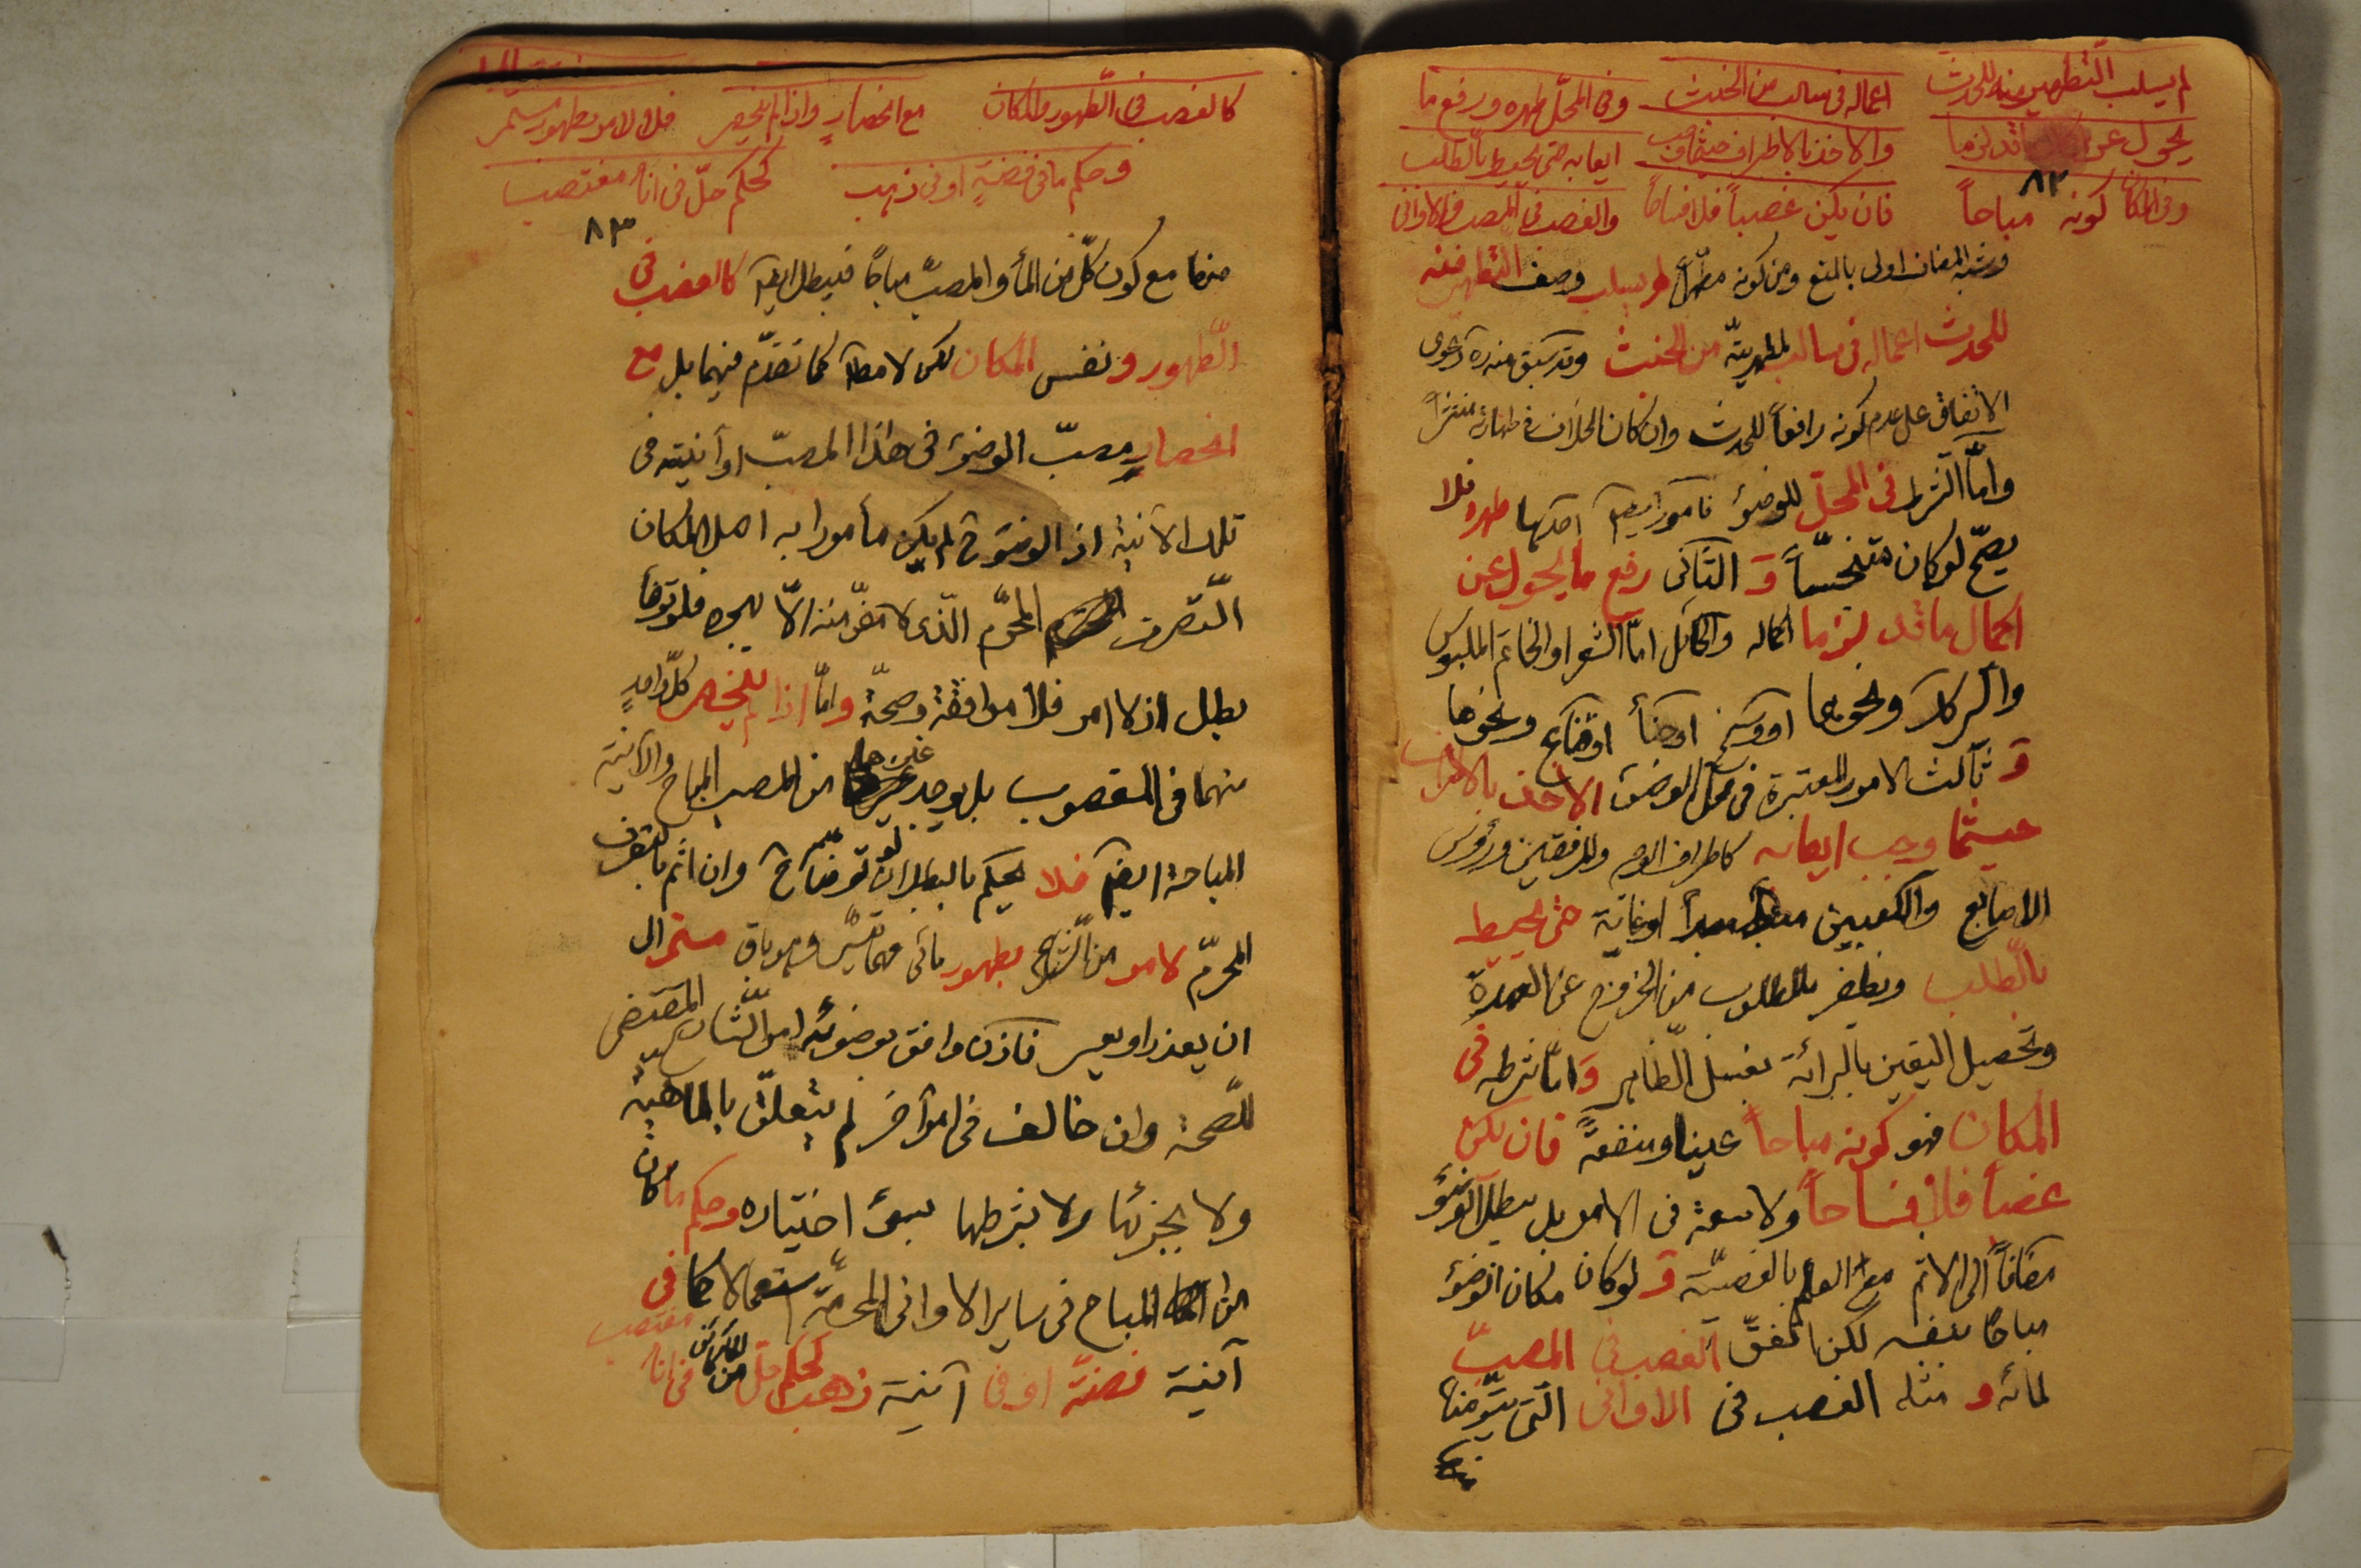 لم يسلب التطهير منه للحدث اعماله في سالب من الخبث وفي المحلّ طهره ورفع ما
يحول عن قد لزما والاخذ بالاطراف حيثما وجب ايعابه حتى يحيط بالطلب
وفي المكان كونه مباحاً فان يكن غصباً فلا فساحا والغصب في المصب والاواني
٨٢
وشبه المضاف اولى بالمنع ومن كونه مطهّراً لم يسلب وصف التطهير منه
للحدث اعماله في سالب لمطهريّة من الخبث وقد سبق منه ره دعوى
الاتفاق على عدم كونه رافعاً للحدث وان كان الخلاف في طهارته
وامّا الشرط في المحلّ للوضوء فامور ايضا احدها طهره فلا
يصحّ لو كان متنجّساً وَ الثاني رفع ما يحول عن
اكمال ما قد لزما اكماله والحائل امّا الشعر او الخاتم الملبوس
ونحوهما او وسخ او حنأ ونحوها
وَ ثالث الامور المعتبرة في محلّ الوضوء الاخذ بالاطراف
حيثما وجب ايعابه كاطراف الوجه والمرفقين ورؤوس
الاصابع والكعبين مبدأ او غاية حتى يحيط
بالطلب ويظفر بالمطلوب من الخروج عن العهدة
وتحصيل اليقين بالبرائة بغسل الظاهر وَامّا شرطه في
المكان فهو كونه مباحاً عينا ومنفعةً فان يكن
غصباً فلا فساحاً ولا سعة في الامر بل يبطل الوضوء
مضافاً الى الاثم مع العلم بالغصبيّة وَ لو كان مكان الوضوء
مباحا بنفسه لكن اتفق الغصب في المصبّ
لمائه و مثله الغصب في الاواني التي يتوضأ
كالغصب في الطهور والمكان مع انحصارٍ واذا لم ينحصر فلا لامر بطهور مستمر
وحكم ما في فضةٍ او في ذهب كحكم حلّ في اناء مغتصب
٨٣
منها مع كون كلّ من الماء والمصبّ مباحًا فيبطل ايضا كالغصب في
الطّهور ونفس المكان لكن لا مطلقا كما تقدّم فيهما بل مع
انحصارٍ مصبّ الوضوء في هذا المصبّ او آنيته في
تلك الآنية اذ الوضوء ح لم يكن مأمورا به لاصل المكان
التّصرف المحرّم الّذي لا مفرّ منه الّا بهجره فلو توضأ
بطل اذ لا امر فلا موافقة وصحّة وامّا اذا لم ينحصر كلّ واحدٍ
منهما في المغصوب بل يوجد غيرهما من المصب المباح والآنية
المباحة ايضا فلا يحكم بالبطلان لو توضأ ح وان اثم بالتصرف
المحرّم لامر من الشارع بطهور مائي مهما تيسّر وهو باق مستمر الى
ان يعذر او يعسر فاذن وافق بوضوئه امر الشّارع المقتضي
للصّحة وان خالف في امر آخر لم يتعلّق بالماهية
ولا بجزئها ولا بشرطها بسوء اختياره وحكم ما كان
من المباح في ساير الاواني المحرمة استعمالا كما في
آنية فضّة او في آنية ذهب كحكم حلّ من في اناء مغتصب